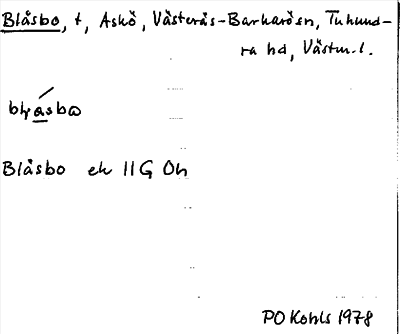 Blåsbo, t, Askö, Västerås-Barkarö sn, Tuhund-
ra hd, Västm. l.
blɑ́sbɷ
Blåsbo ek 11G 0h
PO Kohls 1978